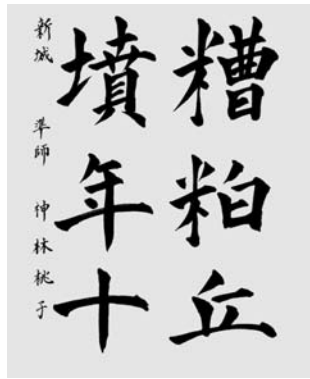 糟粕丘
墳年十
新城　準師　仲林桃子